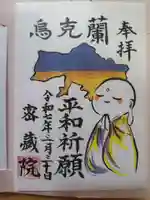 奉拝
烏克蘭
平和祈願
令和七年 月 十日
密蔵院